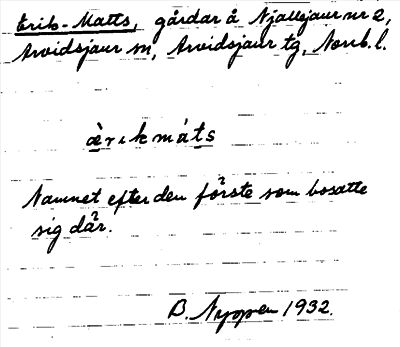 Erik-Matts, gårdar å Njallejaur nr 2,
Arvidsjaur sn, Arvidsjaur tg, Norrb. l.
àrıkmáts
Namnet efter den förste som bosatte
sig där.
B. Nyqpen 1932.